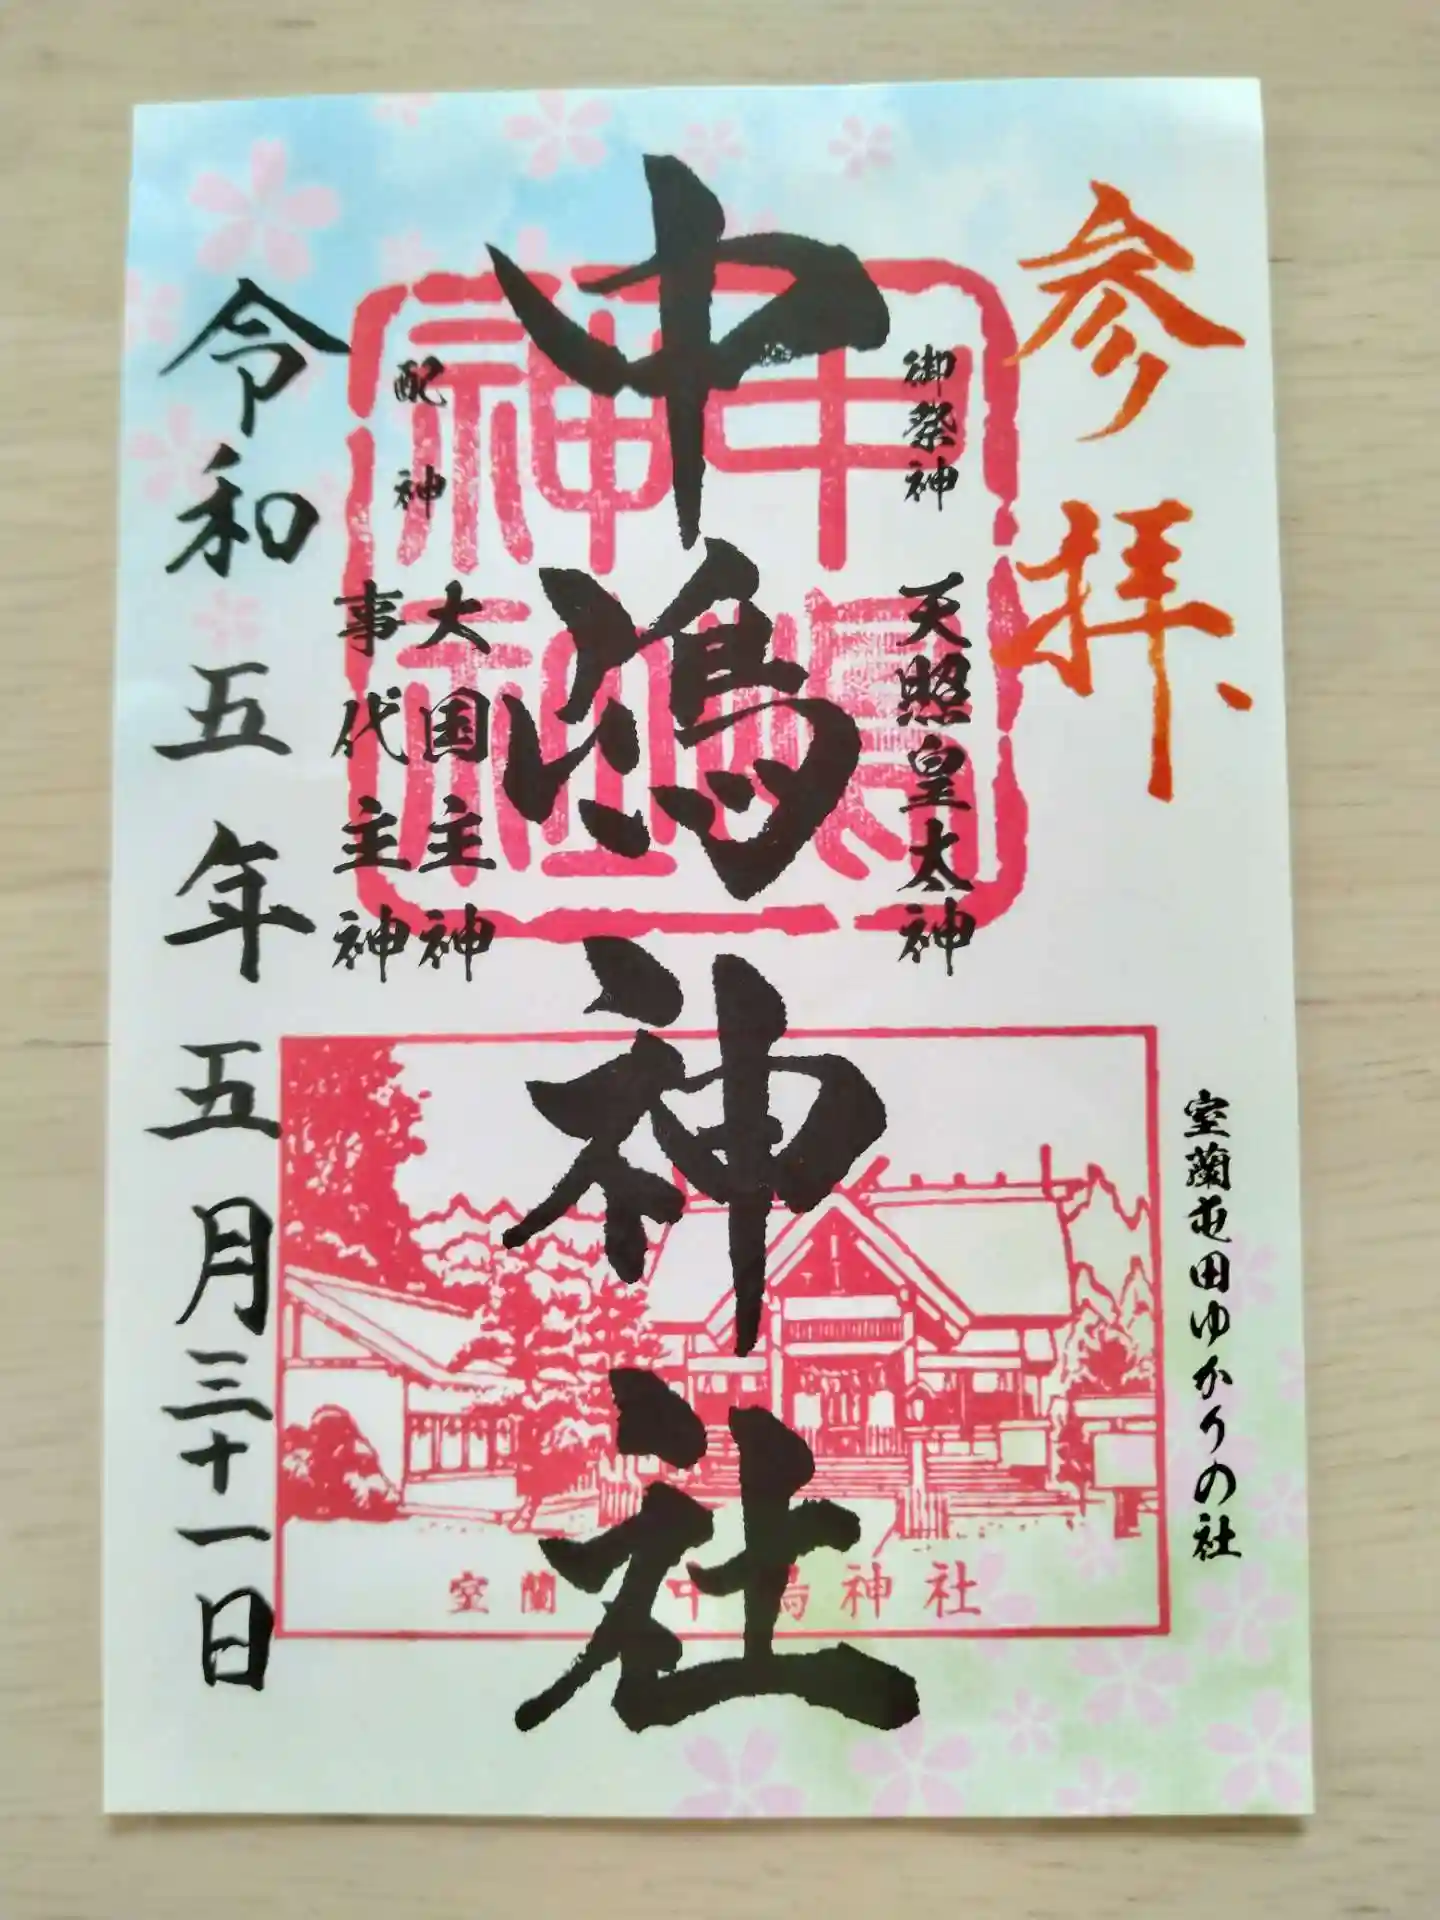 参拝
室蘭屯田ゆかりの社
御祭神 天照皇太神
中嶋神社
中嶋神社
配神
大国主神
事代主神
令和五年五月三十一日
室蘭 中嶋神社